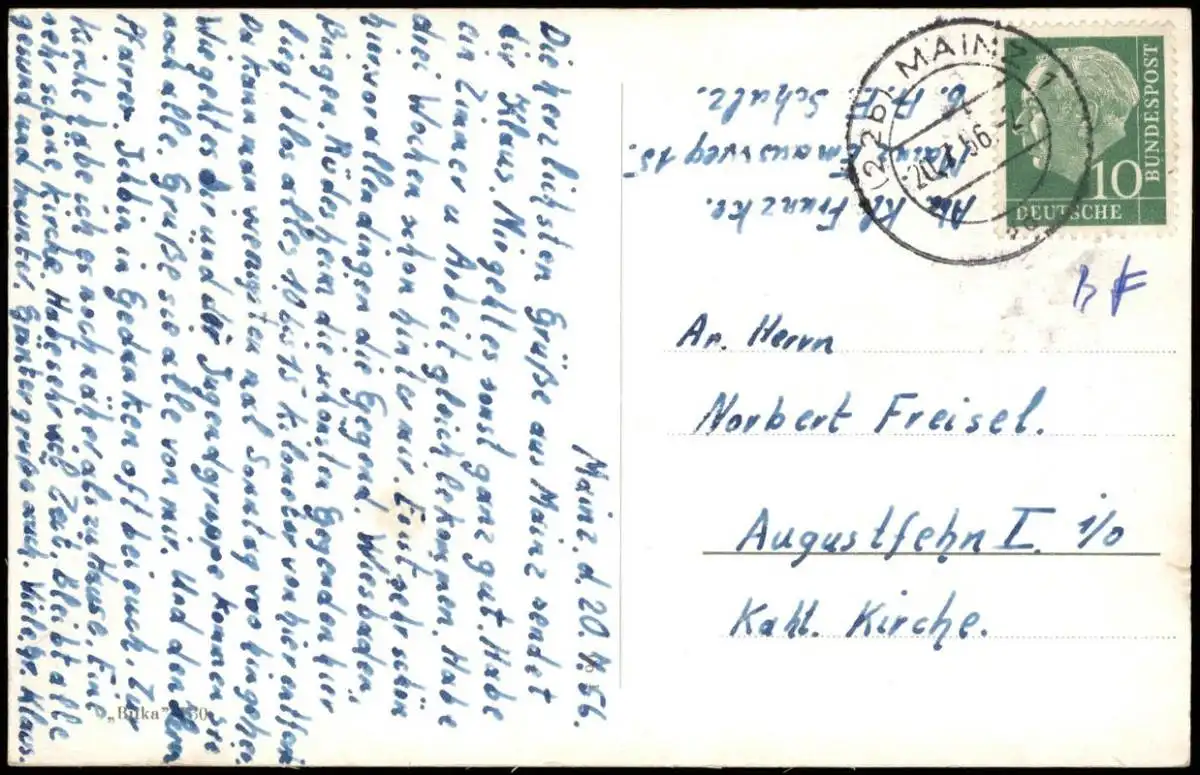 Mainz, d. 20. 7. 56.
Die herzlichsten Grüße aus Mainz sendet
dir Klaus. Mir geht es sonst ganz gut. Habe
ein Zimmer u Arbeit gleich bekommen. Habe
drei Wochen schon hinter mir. Es ist sehr schön
hier vor allen dingen die Gegend. Wiesbaden,
Bingen, Rüdesheim die schönsten Gegenden hier
liegt blos alles 10 bis 15 kilometer von hier entfert
Da kann man wenigsten nat Sonntag wo hingehen.
Wie geht es dir und der Jugendgruppe kommen sie
noch alle. Grüße sie alle von mir. Und auch den
Pfarrer. Ich bin in Gedanken oft bei euch. Zur
Kirche habe ich es noch näher als zu Hause. Eine
sehr schöne Kirche. Habe sehr viel Zeit. Bleibt alle
gesund und munter. Günter grüße auch. Viele gr. Klaus.
„Buka" 730
Abs. Kl. Franzke.
Mainz
b. A. A. Schulz.
(22b) MAINZ 1
20.7.56.
10
DEUTSCHE
BUNDESPOST
An. Herrn
Norbert Freisel.
Augustfehn I. i/o
Kath. Kirche.